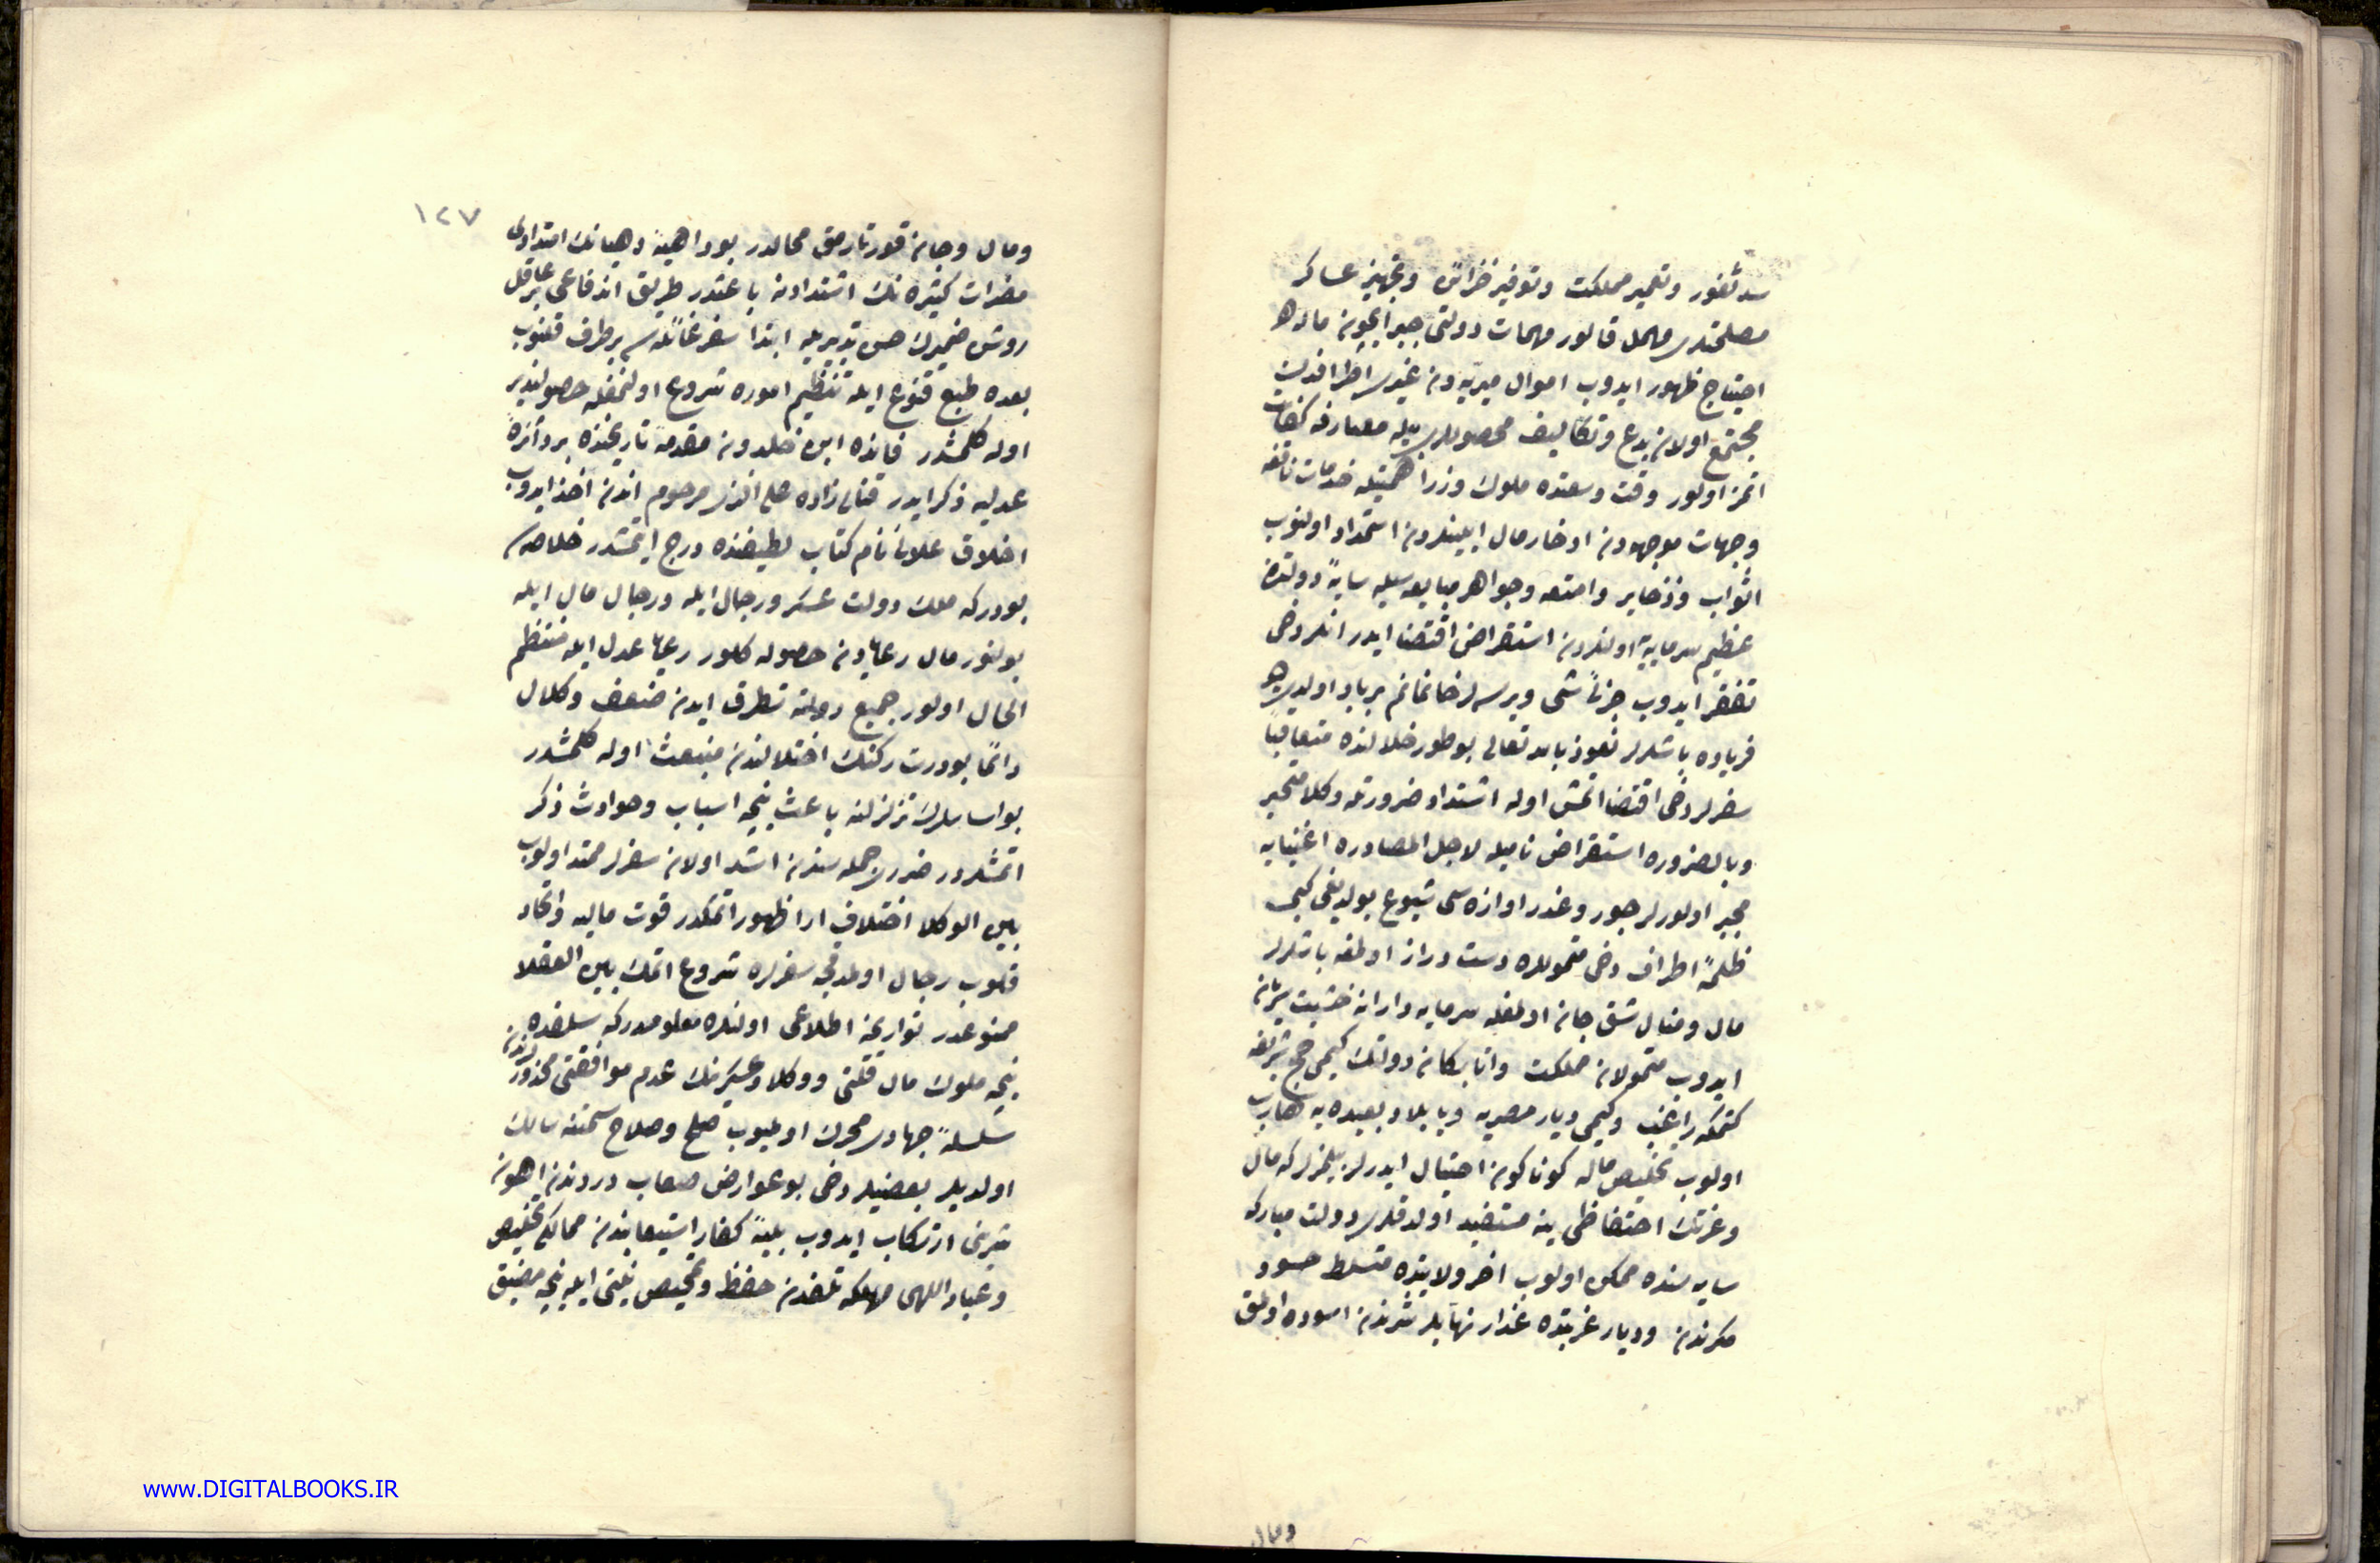 سد ثغور وتعمير مملكت وتوفير خزائن وتجهيز عساكر
مصلحتلرى مهمل قالور مهمات دولتى جبر ايچون ماله
احتياج ظهور ايدوب اموال ميريه دن غيرى اطرافدن
مجتمع اولان بدع وتكاليف محصوللرى بيله مصارفه كفايت
اتمز اولور وقت وسعتده ملوك وزرا همتيله خدمات نافعه
وجهات موجهه دن ادخار مال ايلينلردن استمداد اولنوب
اثواب وذخاير وامتعه وجواهر مبايعه سيله سايۀ دولتده
عظيم سرمايه اولنلردن استقراض اقتضا ايدر انلر دخى
تفقر ايدوب جزئى شى ويرسه لر خانمانم برباد اولدى ديو
فرياده باشلرلر نعوذ بالله تعالى بو طور خلالنده متعاقبا
سفرلر دخى اقتضا اتمش اوله اشتداد ضرورتله وكلا متحير
وبالضروره استقراض ناميله لاجل المصادره اغنيايه
مجبر اولورلر جور وغدر اوازه سى شيوع بولديغى كبى
ظلمۀ اطراف دخى متموللره دست دراز اولمغه باشلرلر
مال ومنال شق جان اولمغله سرمايه داران خشيت پريشان
ايدوب متمولان مملكت واتابكان دولتك كيمى حج شريفه
كتمكه راغب وكيمى ديار مصريه وبابلاد بعيده يه هارب
اولوب تخليص ماله كوناكون احتيال ايدرلر بيلمزلر كه مال
وعزتك احتفاظى ينه مستفيد اولدقلرى دولت مباركه
سايه سنده ممكن اولوب اخر ولايتده متسلط حسود
مكرندن وديار غربتده غدار نهابلر شرندن اسوده اولمق
ومال
١٢٧
ومال وجان قورتارمق محالدر بو داهيۀ دهيانك امتدادى
مضرات كثيره نك اشتدادينه باعثدر طريق اندفاعى بر عاقل
روشن ضميرك حسن تدبيريله ابتدا سفر غائله سى برطرف قلنوب
بعده طبع قنوع ايله تنظيم اموره شروع اولنمغله حصولپذير
اوله كلمشدر فائده ابن خلدون مقدمه تاريخنده بر دائرۀ
عدليه ذكر ايدر قنالى زاده على افندى مرحوم اندن اخذ ايدوب
اخلاق علائى نام كتاب لطيفنده درج ايتمشدر خلاصه سى
بودر كه ملك دولت عسكر ورجال ايله ورجال مال ايله
بولنور مال رعايادن حصوله كلور رعايا عدل ايله منتظم
الحال اولور جميع دولته تطرق ايدن ضعف وكلال
دائما بو درت ركنك اختلالندن منبعث اوله كلمشدر
بو اساسلرك تزلزلنه باعث نيجه اسباب وحوادث ذكر
اتمشلردر ضررى جمله سندن اشد اولان سفرلر ممتد اولوب
بين الوكلا اختلاف ارا ظهور اتمكدر قوت ماليه واتحاد
قلوب رجال اولمدقجه سفرلره شروع اتمك بين العقلا
ممنوعدر تواريخه اطلاعى اولنلره معلومدر كه سلفده
نيجه ملوك مال قلتى ووكلا وعسكرينك عدم موافقتى محذورلرندن
سلسلۀ جهادى محرك اولميوب صلح وصلاح سمتنه سالك
اولديلر بعضيلر دخى بو عوارض صعاب دروندن اهون
شرينى ارتكاب ايدوب بليۀ كفار استيعابندن ممالكى تخليص
وعباد اللهى مهلكه تلفدن حفظ وتمحيص نيتى ايله نيجه مضيق
www.DIGITALBOOKS.IR